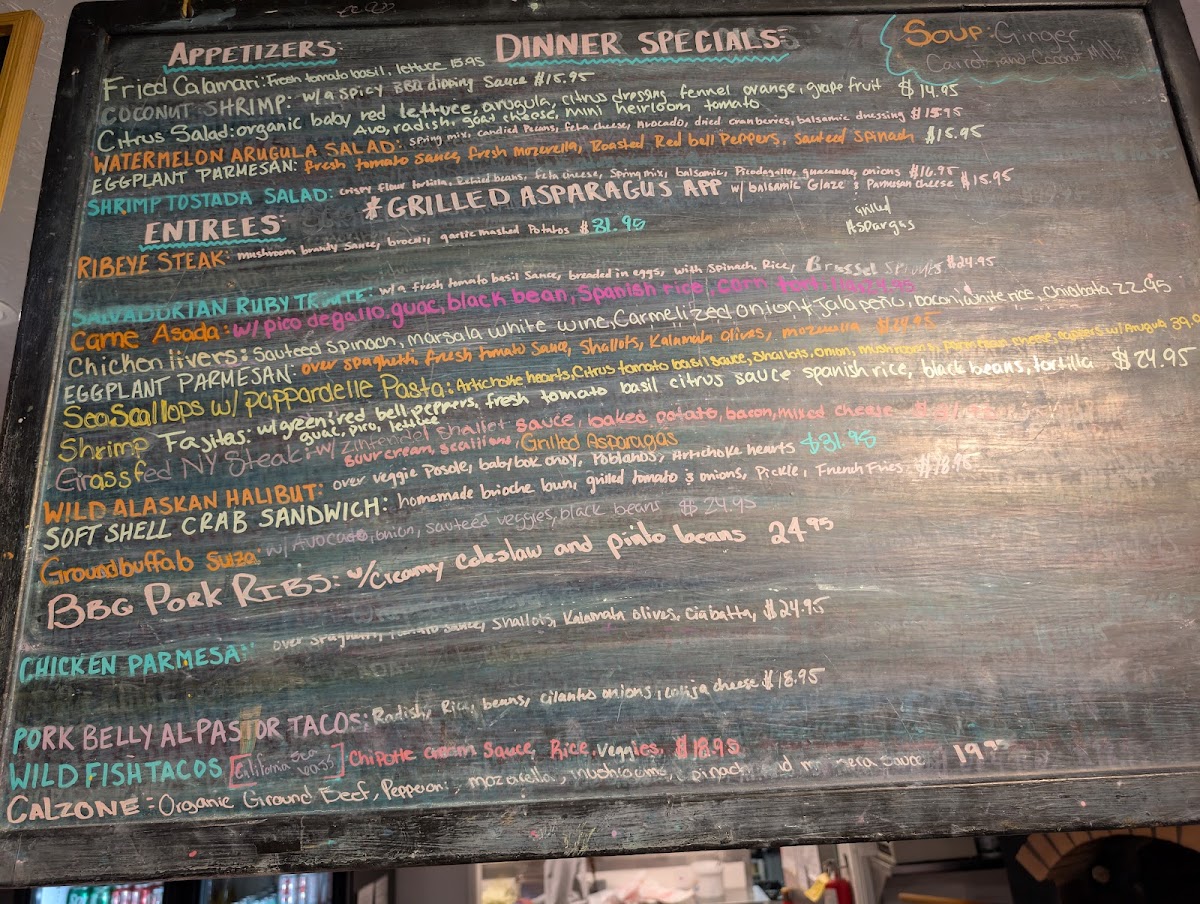 APPETIZERS: DINNER SPECIALS
Soup: Ginger
Carrot and Coconut Milk
Fried Calamari: Fresh tomato basil, lettuce 15.95
COCONUT SHRIMP: w/a spicy BBQ dipping sauce $15.95
Citrus Salad: organic baby red lettuce, arugula, citrus dressing fennel orange, grape fruit $14.95
Avo, radish, goat cheese, mini heirloom tomato
WATERMELON ARUGULA SALAD: spring mix, candied pecans, feta cheese, Avocado, dried cranberries, balsamic dressing $15.95
EGGPLANT PARMESAN: fresh tomato sauce, fresh mozerella, Roasted Red bell Peppers, sauteed spinach $15.95
SHRIMP TOSTADA SALAD: crispy flour tortilla, Refried beans, feta cheese, Spring mix, balsamic, Picodegallo, guacamole, onions $16.95
*GRILLED ASPARAGUS APP w/ balsamic Glaze & Parmesan cheese $15.95
ENTREES:
grilled
Aspargas
RIBEYE STEAK: mushroom brandy sauce, brocoli, garlic mashed Potatos $31.95
SALVADORIAN RUBY w/a fresh tomato basil sauce, breaded in eggs, with Spinach, Rice, Brussel Sprouts $24.95
Carne Asada: w/ pico de gallo, guac, black bean, Spanish rice, corn tortilla
Chicken livers: Sauteed spinach, marsala, white wine, Carmelized onion + Jalapeño, bacon, white rice, Chiabata 22.95
EGGPLANT PARMESAN: over spaghetti, fresh tomato sauce, Shallots, Kalamata olives, mozzerella
Sea Scallops w/ pappardelle Pasta: Artichoke hearts, Citrus tomato basil sauce, Shallots, onion, mushrooms, Parmesan cheese, peppers w/ Arugula
Shrimp Fajitas: w/ green/red bell peppers, fresh tomato basil citrus sauce spanish rice, black beans, tortilla $24.95
guac, pico, lettuce
Grassfed NY Steak: w/ Zinfendel shallot sauce, baked potato, bacon, mixed cheese
sour cream, scallions, Grilled Asparagas
WILD ALASKAN HALIBUT: over veggie Posole, baby bok choy, Poblanos, Artichoke hearts $31.95
SOFT SHELL CRAB SANDWICH: homemade brioche bun, grilled tomato & onions, Pickle, French Fries,
Ground buffalo Suiza: w/ Avocado, onion, sauteed veggies, black beans $24.95
BBQ PORK RIBS: w/ Creamy Coleslaw and pinto beans 24.95
CHICKEN PARMESA: over Spaghetti, tomato sauce, Shallots, Kalamata olives, Ciabatta, $24.95
PORK BELLY AL PASTOR TACOS: Radish, Rice, beans, cilantro onions, cotija cheese $18.95
WILD FISH TACOS California Sea Bass Chipotle cream Sauce, Rice, veggies, $18.95
CALZONE: Organic Ground Beef, Pepperoni, mozarella, mushrooms, spinach sauce 19.95